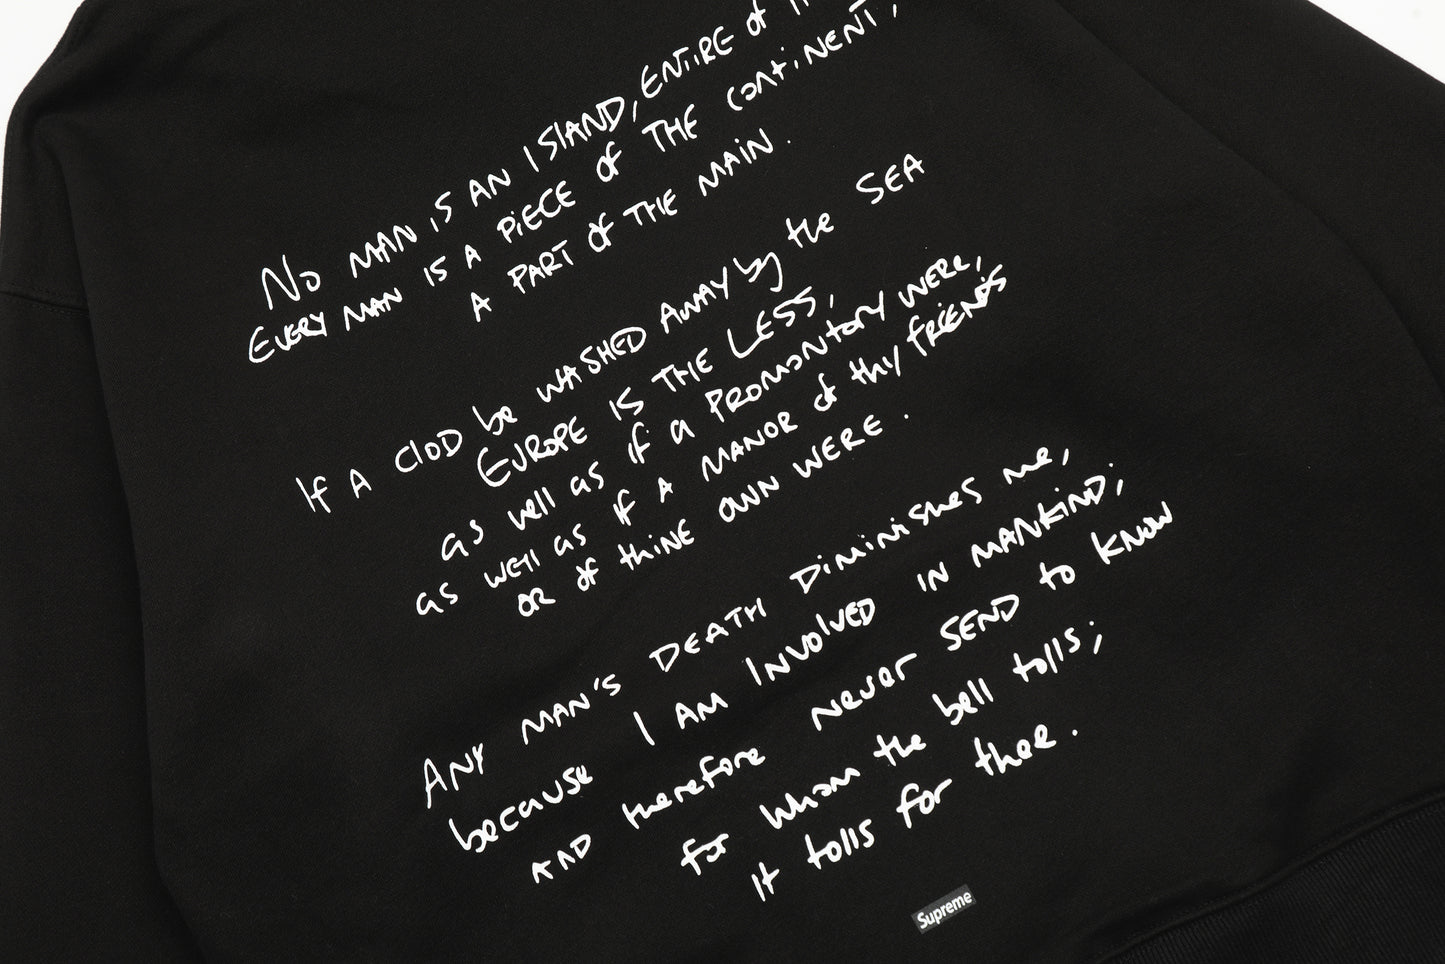 NO MAN IS AN ISLAND, ENTIRE of
EVERY MAN IS A PIECE of THE continENT,
A PART of THE MAIN.
If A clOD be WASHED AWAY by the SEA
EUROPE IS THE LESS,
as well as if a PROMONtory WERE,
as well as if A MANOR of thy FRIENDS
OR of thiNE OWN WERE.
ANY MAN'S DEATH Diminishes me,
because I AM INVOlVED IN MANKIND;
AND therefore never SEND to KNOW
for whom the bell tolls;
It tolls for thee.
Supreme